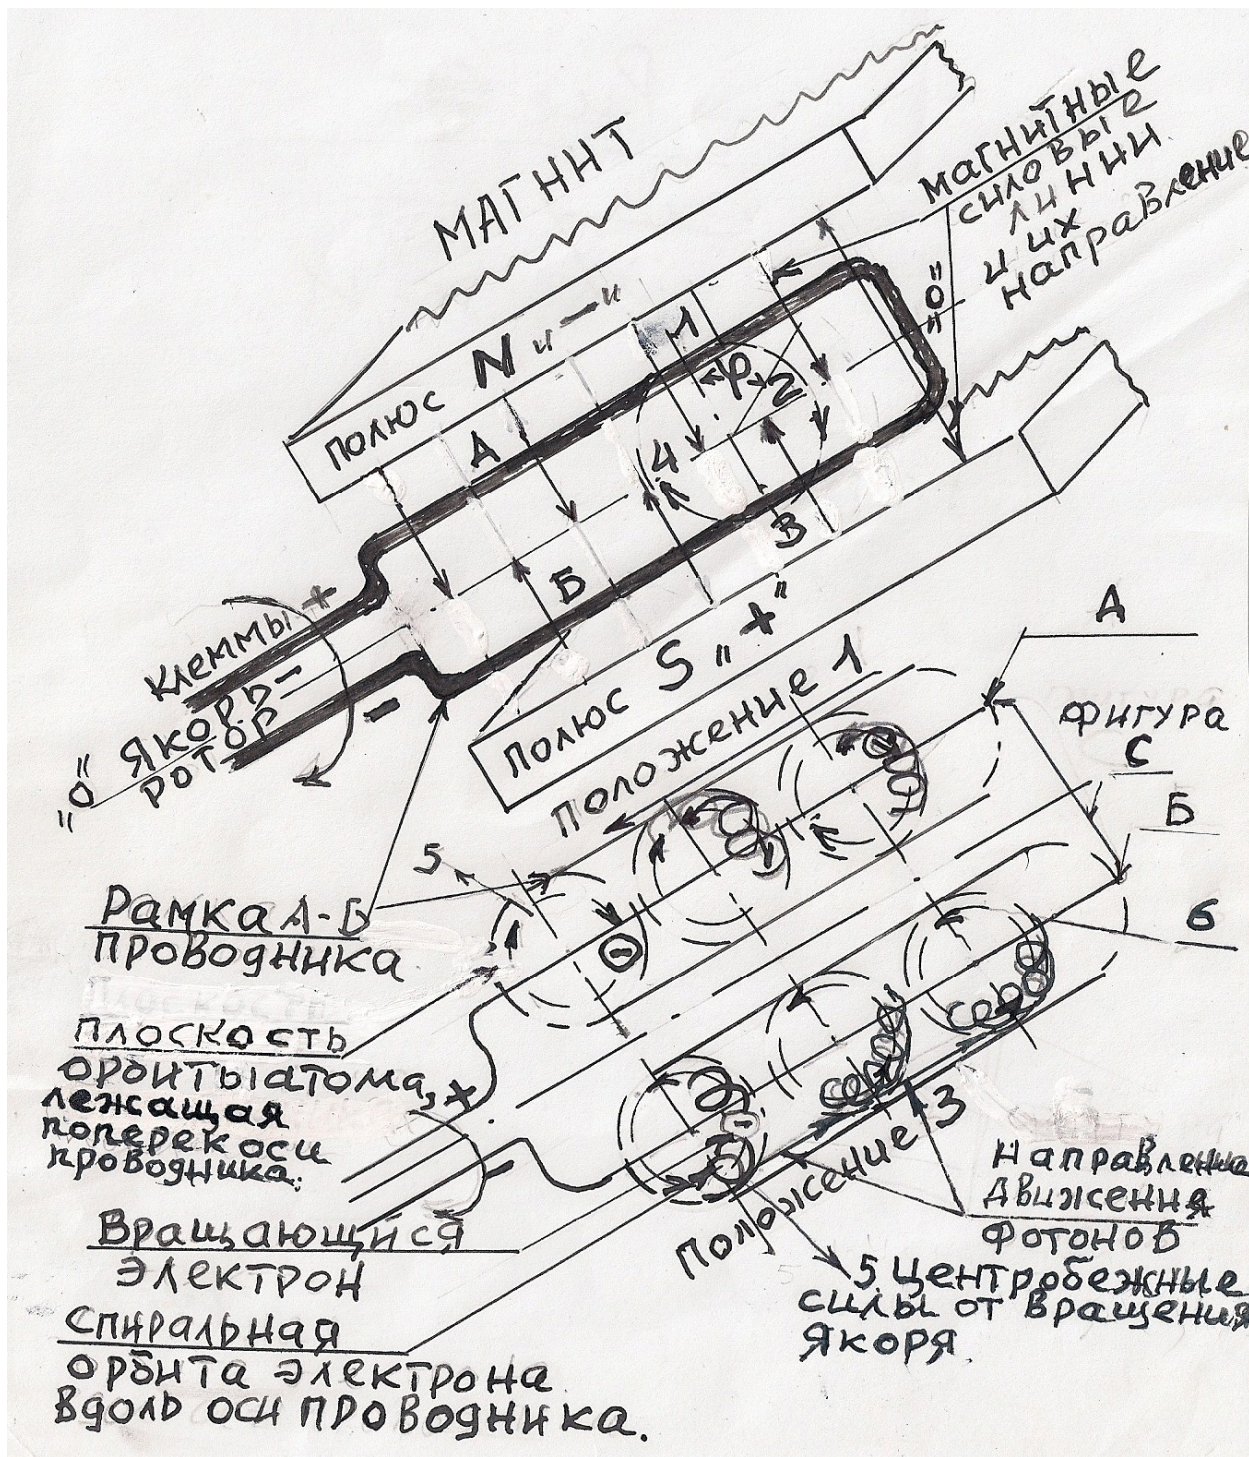 МАГНИТ
магнитные
силовые
линии
и их
направление
"0"
полюс N „—"
1
А
φ
2
4
3
Б
Клеммы +
Якорь
ротор
"0"
—
полюс S „+"
положение 1
А
фигура
С
Б
5
6
Рамка А-Б
проводника
плоскость
орбиты атома,
лежащая
поперек оси
проводника.
+
—
Вращающийся
электрон
Спиральная
орбита электрона
вдоль оси проводника.
Положение 3
Направление
движения
фотонов
5 Центробежные
силы от вращения
якоря